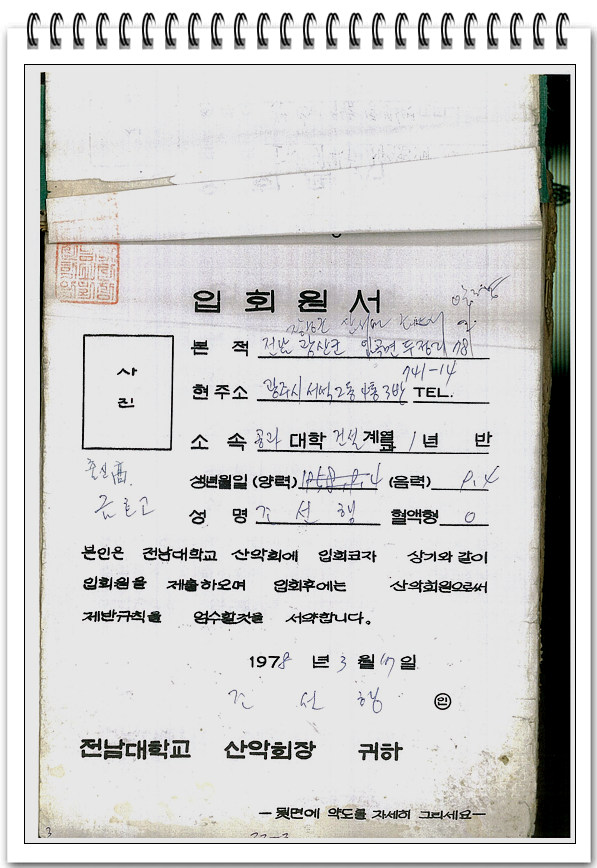 입회원서
본 적 전남 광산군 임곡면 두정리 781
741-14
현주소 광주시 서석2동 4통 3반 TEL.
소 속 공과 대학 건설 계열 1 년 반
사진
출신高.
금호고
생년월일 (양력) 1958. 9. 4 (음력) 9. 4
성 명 조 선 행 혈액형 O
본인은 전남대학교 산악회에 입회코자 상기와 같이
입회원을 제출하오며 입회후에는 산악회원으로써
제반규칙을 엄수할것을 서약합니다.
1978 년 3 월 17 일
조 선 행 인
전남대학교 산악회장 귀하
—뒷면에 약도를 자세히 그리세요—
3